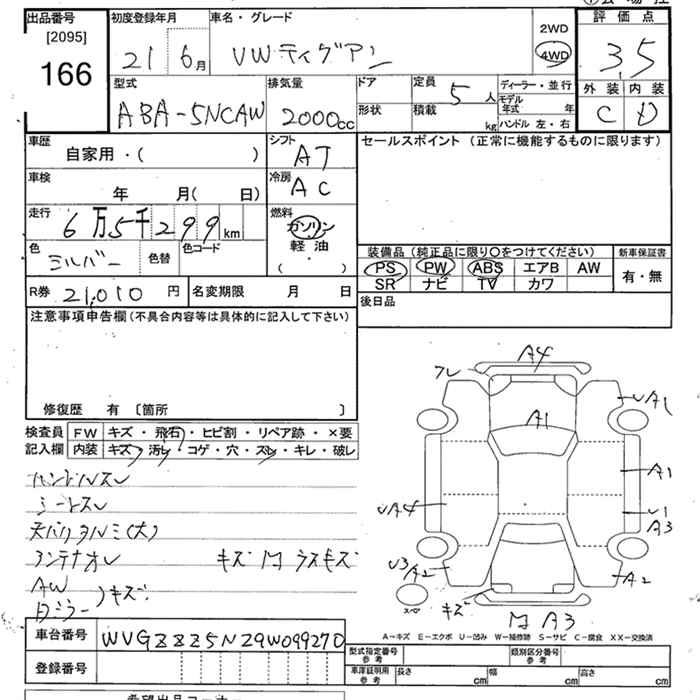 出品番号 初度登録年月 車名・グレード 評価点
[2095]
166
21 6月 VWティグアン 2WD 4WD 3.5
型式 排気量 ドア 定員 5人 ディーラー・並行 外装 内装
ABA-5NCAW 2000cc 形状 積載 kg モデル年式 年 C D
ハンドル 左・右
車歴 シフト セールスポイント (正常に機能するものに限ります)
自家用・( ) AT
車検 冷房
年 月( 日) AC
走行 燃料
6万5千299km ガソリン
軽油
( ・ )
色 色替 色コード 装備品(純正品に限り〇をつけてください) 新車保証書
シルバー PS PW ABS エアB AW 有・無
SR ナビ TV カワ
R券 21,010円 名変期限 月 日 後日品
注意事項申告欄(不具合内容等は具体的に記入して下さい)
修復歴 有 〔箇所 〕
検査員 FW キズ・飛石・ヒビ割・リペア跡・×要
記入欄 内装 キズ・汚レ・コゲ・穴・スレ・キレ・破レ
ハンドルスレ
シートスレ
キズ
AW
キズ
A4
フレ
A1
UA1
A1
UA4
U1
A3
U3
A2
A2
スペア
キズ
A3
A－キズ E－エクボ U－凹み W－補修跡 S－サビ C－腐食 XX－交換済
車台番号 WVGZZZ5NZ9W099270
型式指定番号 参考 類別区分番号 参考
登録番号 車庫証明用 参考 長さ cm 幅 cm 高さ cm